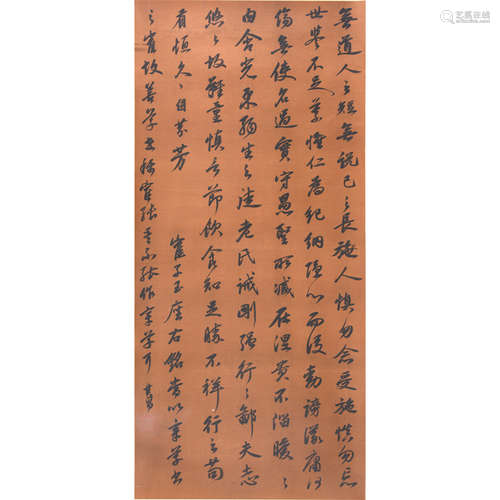 無道人之短無說己之長施人慎勿念受施慎勿忘
世譽不足慕惟仁為紀綱隱心而後動謗議庸何
傷無使名過實守愚聖所臧在涅貴不淄曖〻
內含光柔弱生之徒老氏誡剛強行〻鄙夫志
悠〻故難量慎言節飲食知足勝不祥行之苟
有恒久〻自芬芳 崔子玉座右銘嘗以章草書
之崔故善 書稱崔張 不 作章草 其昌
艺狐在线